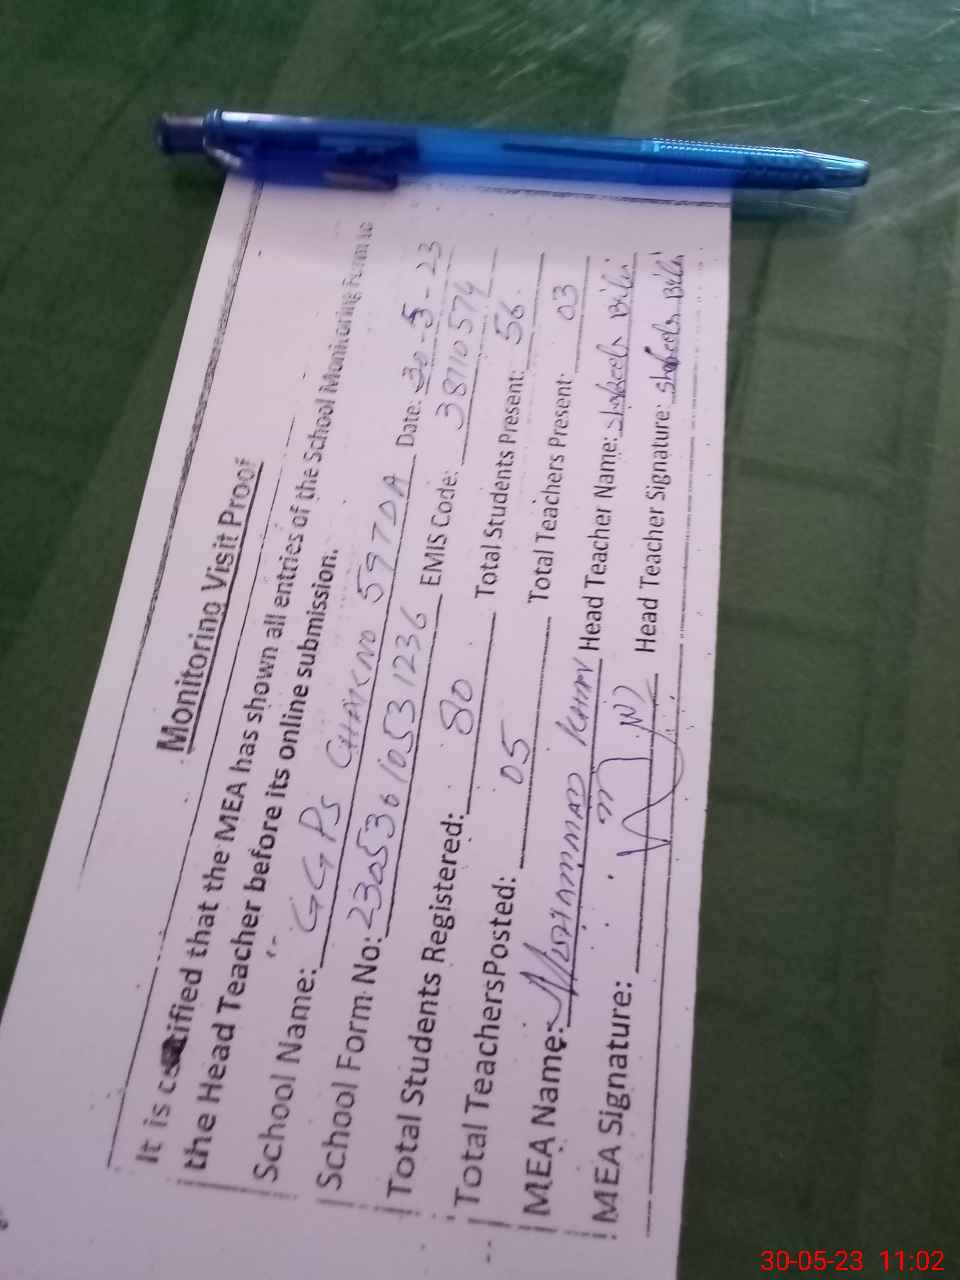 Monitoring Visit Proof
It is certified that the MEA has shown all entries of the School Monitoring Form to
the Head Teacher before its online submission.
School Name: GGPS CHAK NO 597DA Date: 30-5-23
School Form No: 23053610531236 EMIS Code: 38110574
Total Students Registered: 80 Total Students Present: 56
Total TeachersPosted: 05 Total Teachers Present: 03
MEA Name: MUHAMMAD KHAN Head Teacher Name:
MEA Signature: Head Teacher Signature:
30-05-23 11:02